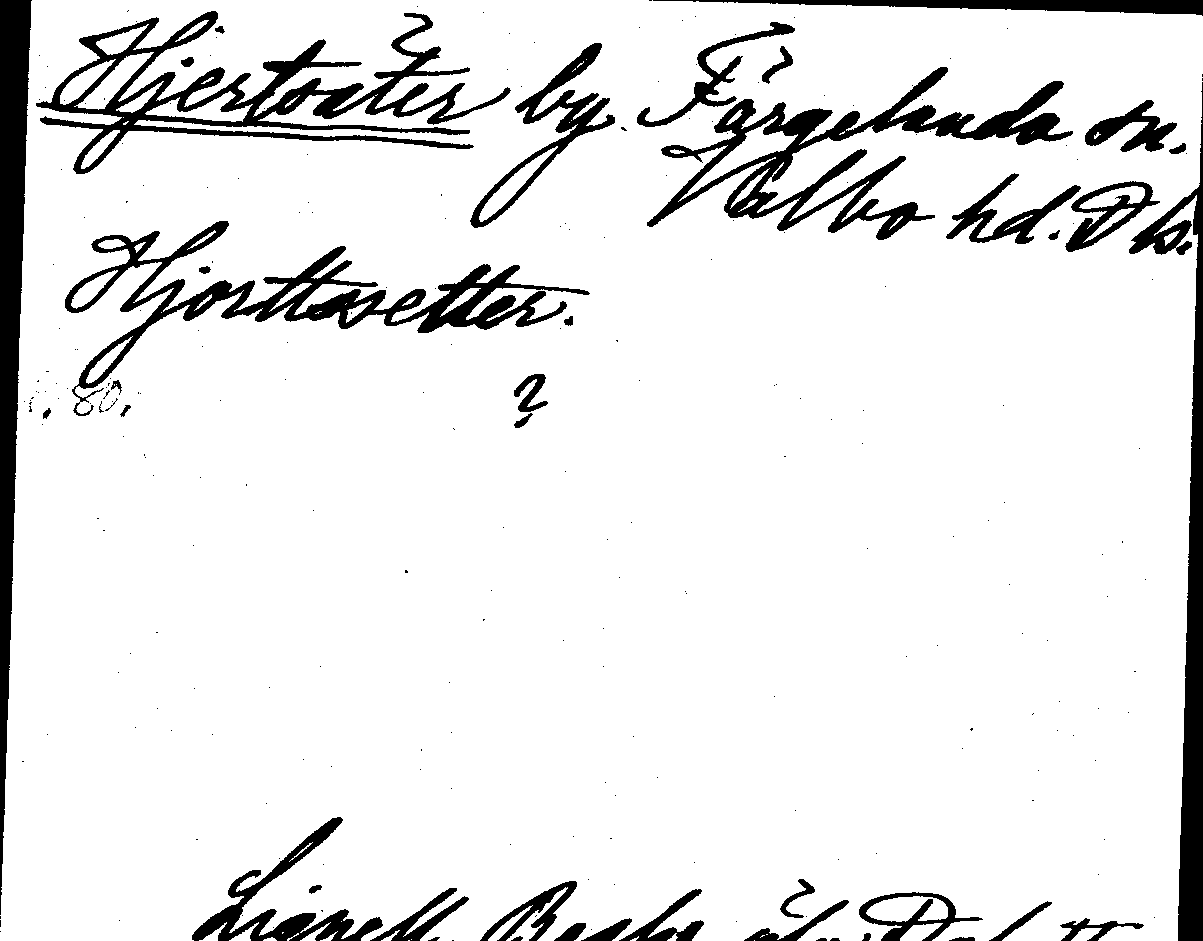 Hjertsäter by. Färgelanda sn.
Valbo hd. Dls.
Hjorttssetter.
s. 80. ?
Lignell Beskr. öfv. Dal II